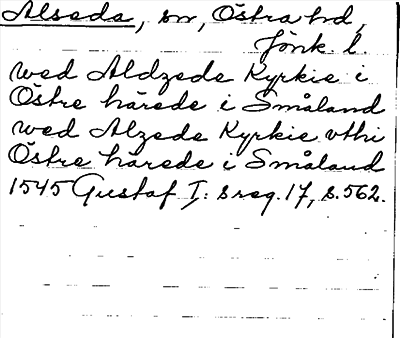 Alseda, sn, Östra hd,
Jönk. l.
wed Aldzede Kyrkie i
Östre härede i Småland
wed Alzede Kyrkie vthi
Östre härede i Småland
1545 Gustaf I: s reg. 17, s. 562.